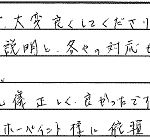 大変良くしてくださり
説明と、各々の対応も
礼儀正しく、良かったです
ホームペイント様に依頼